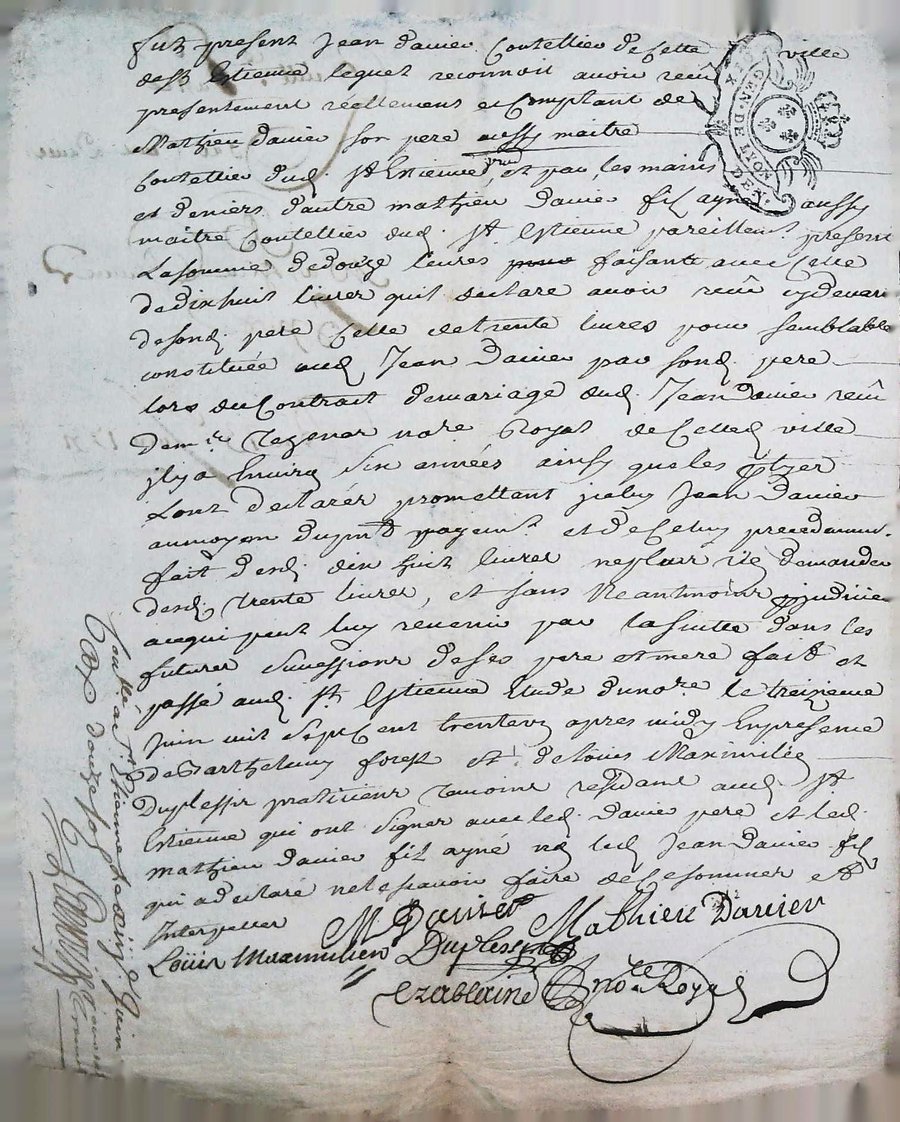 fut present Jean Davier Coutellier de Cette ville
de St Estienne lequel reconnoit avoir receu
presentement réellement et Comptant de
Mathieu davier son pere aussy maitre
Coutellier dud. St Estienne, et par les mains
et deniers d'autre mathieu Davier fils ayné aussy
maitre Coutellier dud. St Estienne pareillemt present
La somme de douze livres faisants avec Cette
de dix huit livres quil declare avoir receu cy devant
desond. pere Cette de trente livres pour semblable
constituée aud. Jean Davier par sond. pere
lors du Contrait de mariage dud. Jean Davier receu
de me notre Royal de Celled. ville
il y a Environ six années ainsy que les
Lont declarés promettant Jean Davier
au moyen du payemt et de Celuy precedammt
fait desd. dix huit livres ne plus rien demander
desd. trente livres, et sans Neantmoins prejudicier
a ce qui peut luy revenir par la suitte dans les
futures successions de ses pere et mere fait et
passé aud. St Estienne Etude du nore le treizieme
Juin mil sept Cent trente apres midy En presence
de Barthelemy forest et de Loüis Maximilien
Duplessis praticiens temoins residant aud. St
Estienne qui ont signé avec led. Davier pere et led.
mathieu Davier fils ayné led. Jean Davier fils
qui a declaré ne le scavoir faire de ce sommé et
Interpellé
M Davier Mathieu Davier
Loüis Maximilien Duplessis
nore Royal
GEN. DE LYON
DEN.
St Estienne le Juin
douze sols